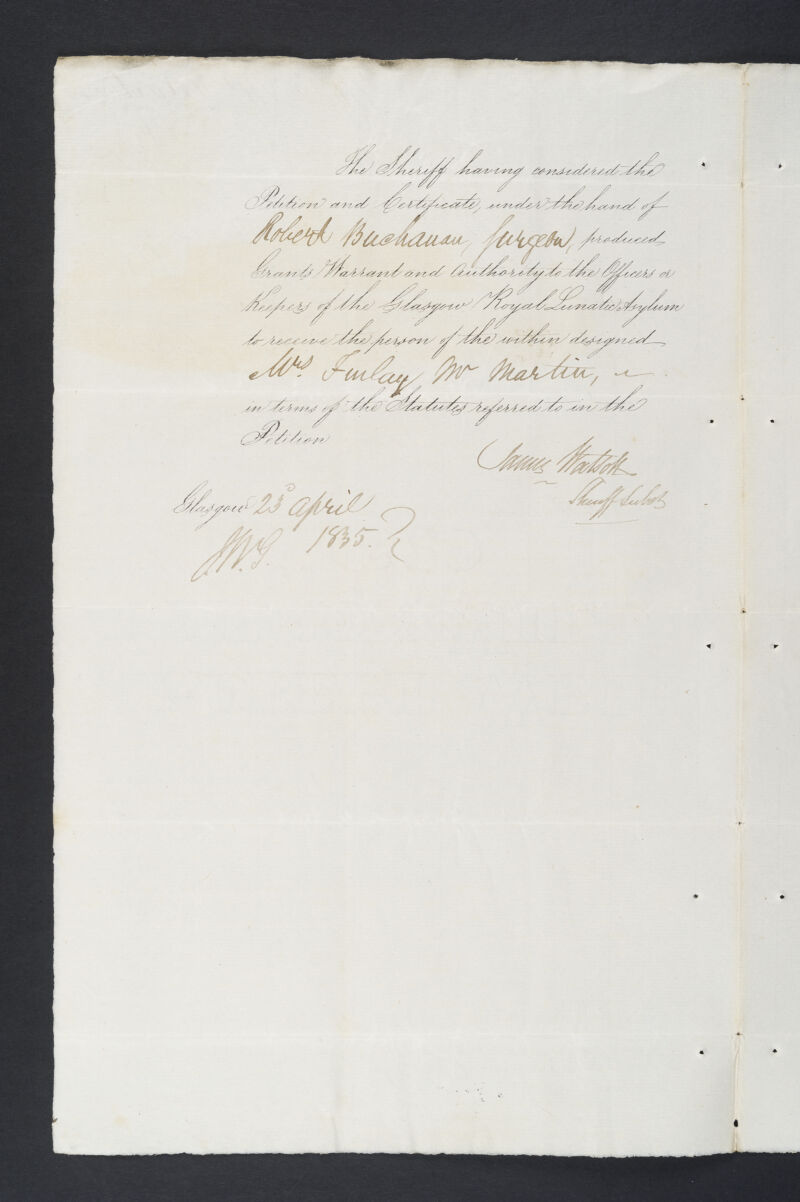 The Sheriff having considered the
Petition and Certificate, under the hand of
Robert Buchanan, Surgeon, produced
Grants Warrant and Authority to the Officers or
Keepers of the Glasgow Royal Lunatic Asylum
to receive the person of the within designed
Mrs. Finlay Mc Martin,
in terms of the Statutes referred to in the
Petition
James Watson
Sheriff Subst
Glasgow 23d April
1835.